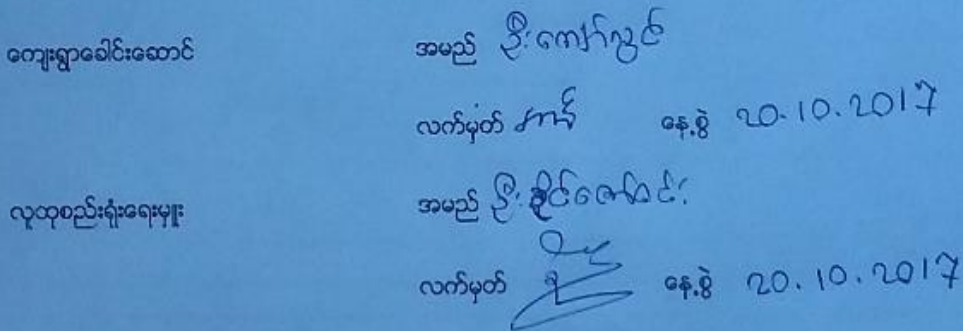 ကျေးရွာခေါင်းဆောင် အမည် ဦးကျော်လွင်
လက်မှတ် နေ့စွဲ 20.10.2017
လူထုစည်းရုံးရေးမှူး အမည် ဦးစိုင်ဇော်ဝင်း
လက်မှတ် နေ့စွဲ 20.10.2017